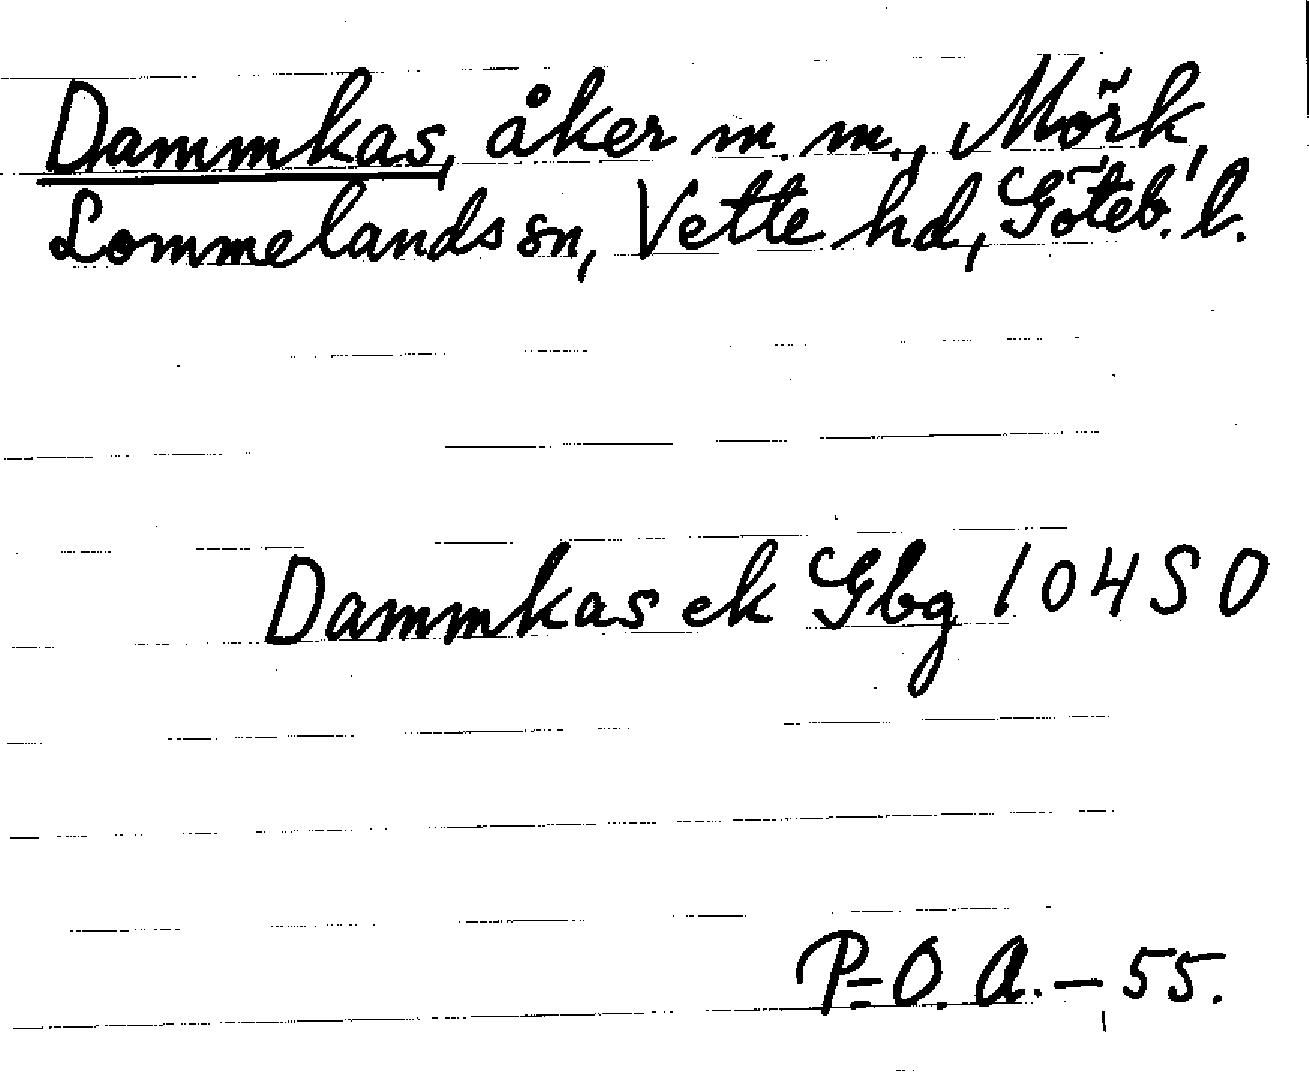 Dammkas, åker m. m., Mörk,
Lommelands sn, Vette hd, Göteb. l.
Dammkas ek Gbg 104 S O
P-O. A. - 55.